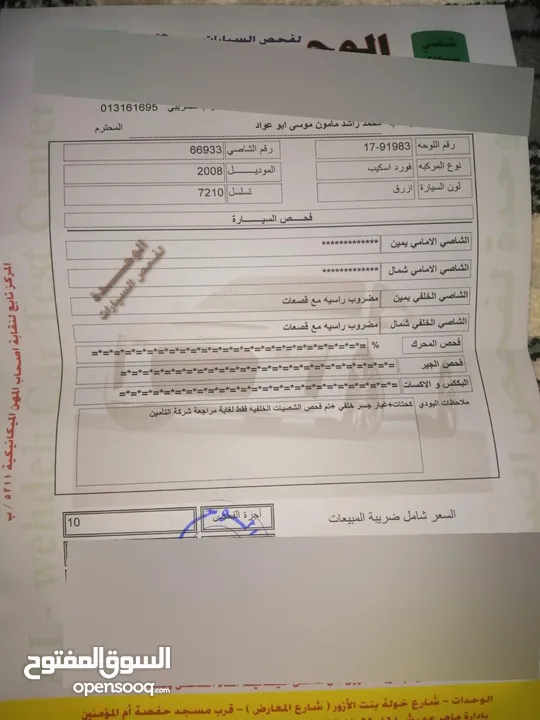 لفحص السيارات
013161695
محمد راشد مامون موسى ابو عواد المحترم
رقم اللوحه 17-91983 رقم الشاصي 66933
نوع المركبه فورد اسكيب الموديـــــل 2008
لون السيارة ازرق تسلسل 7210
فحـــص الســيـــــــارة
الشاصي الامامي يمين *************
الشاصي الامامي شمال *************
الشاصي الخلفي يمين مضروب راسيه مع قصعات
الشاصي الخلفي شمال مضروب راسيه مع قصعات
فحص المحرك %
فحص الجير
البككس و الاكسات
ملاحظات البودي كحتات+غيار جسر خلفي +تم فحص الشصيات الخلفيه فقط لغاية مراجعة شركة التامين
الوحدة
لفحص السيارات
السعر شامل ضريبة المبيعات أجرة الفحص 10
المركز تابع لنقابة اصحاب المهن الميكانيكية ٥٢١١ / ب
السوق المفتوح
opensooq.com
الوحدات - شارع خولة بنت الأزور ( شارع المعارض ) - قرب مسجد حفصة أم المؤمنين